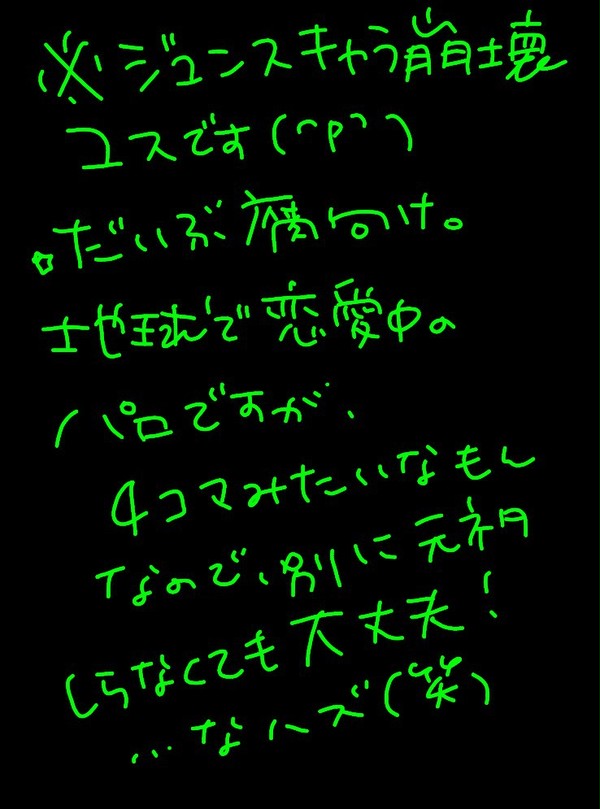 ※ジュンスキャラ崩壊
ユスです(^p^)
☆だいぶ腐向け。
地球で恋愛中の
パロですが、
4コマみたいなもん
なので、別に元ネタ
しらなくても大丈夫!
…なハズ(笑)